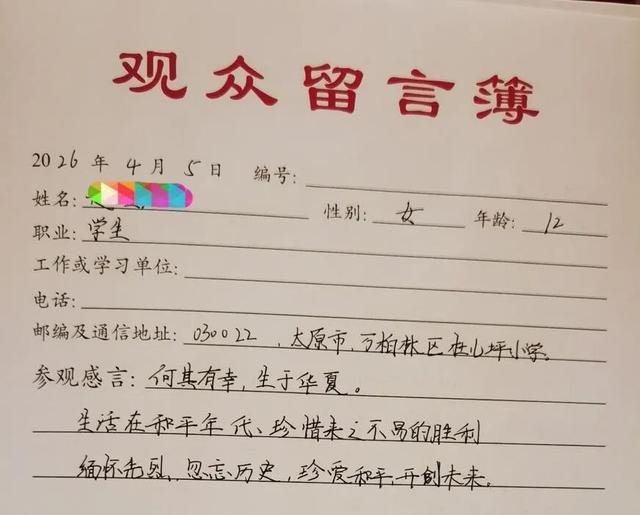 观众留言簿
2026 年 4 月 5 日 编号:
姓名:
性别: 女 年龄: 12
职业: 学生
工作或学习单位:
电话:
邮编及通信地址: 030022，太原市，万柏林区杜儿坪小学。
参观感言: 何其有幸，生于华夏。
生活在和平年代、珍惜来之不易的胜利
缅怀先烈，忽忘历史，珍爱和平，开创未来。